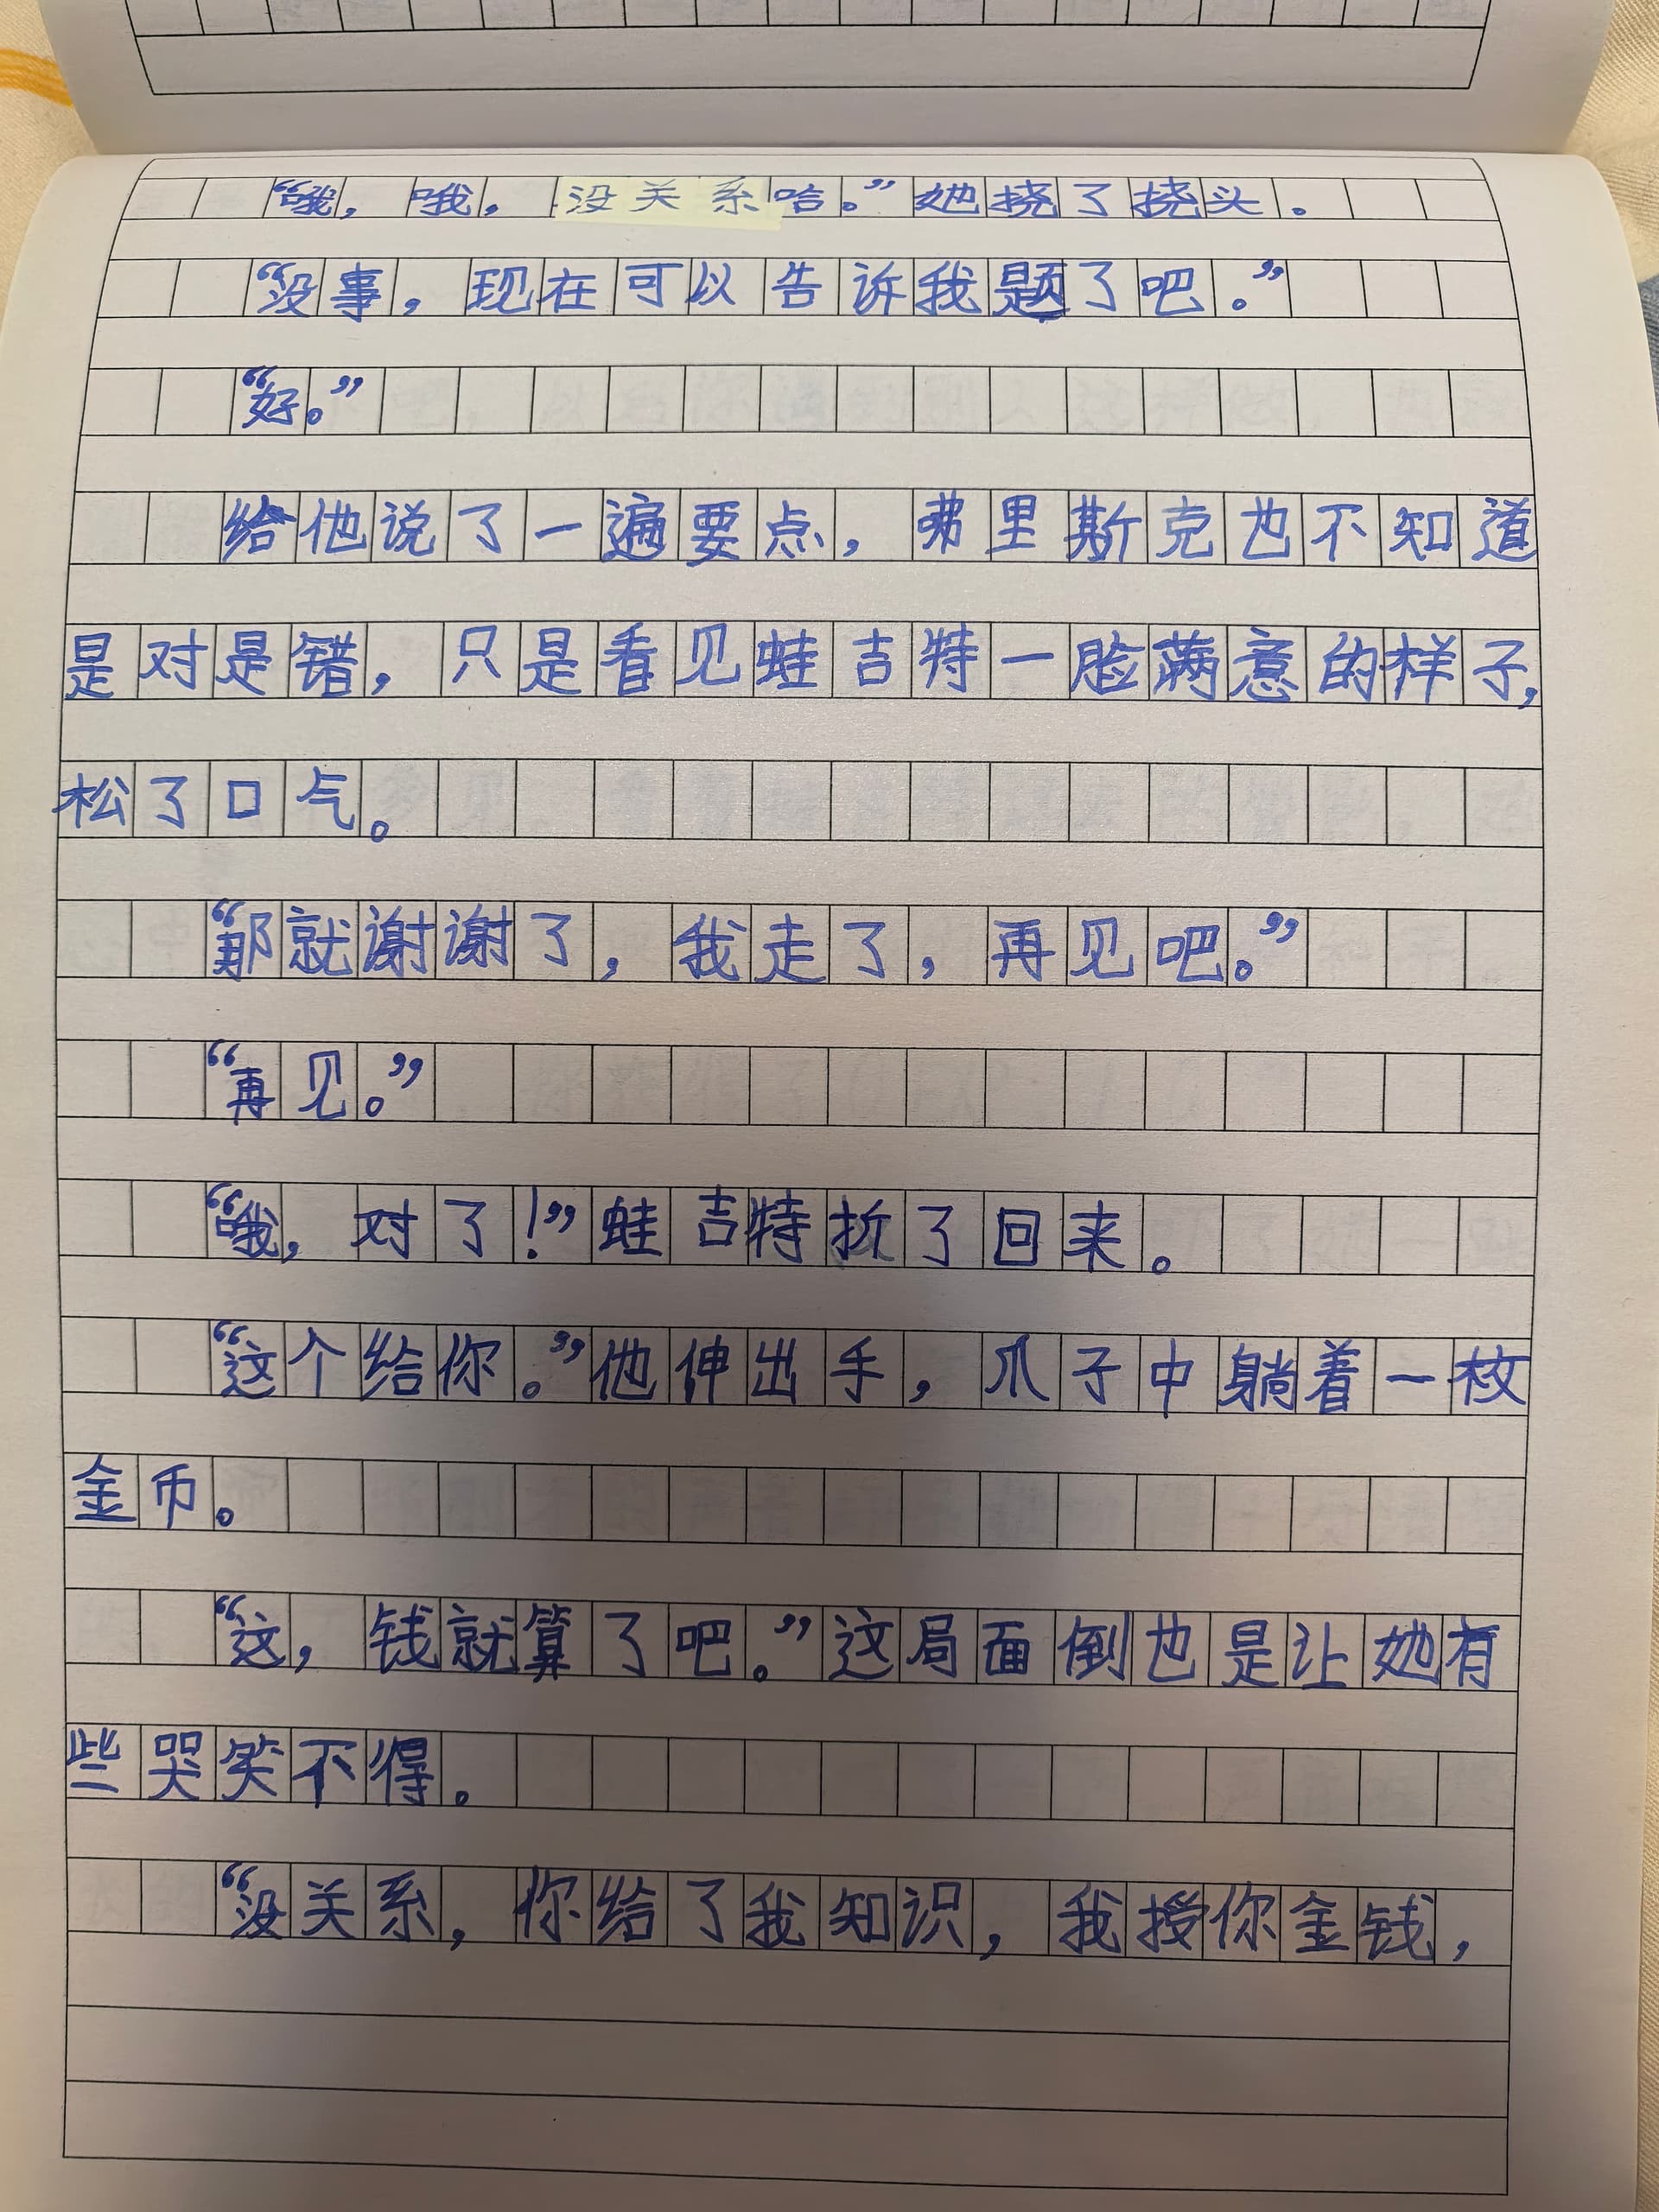 “哦，哦，没关系哈。”她挠了挠头。
“没事，现在可以告诉我题了吧。”
“好。”
给他说了一遍要点，弗里斯克也不知道
是对是错，只是看见蛙吉特一脸满意的样子，
松了口气。
“那就谢谢了，我走了，再见吧。”
“再见。”
“哦，对了！”蛙吉特折了回来。
“这个给你。”他伸出手，爪子中躺着一枚
金币。
“这，钱就算了吧。”这局面倒也是让她有
些哭笑不得。
“没关系，你给了我知识，我授你金钱，